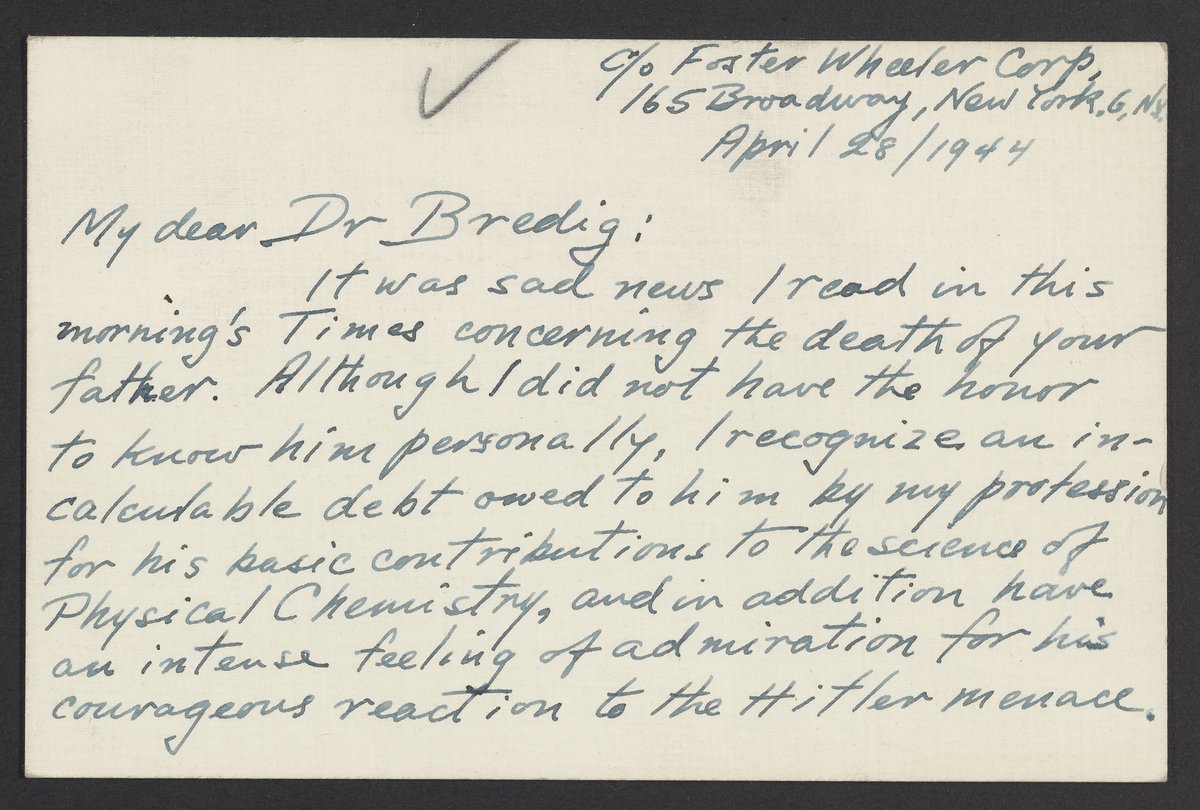 c/o Foster Wheeler Corp,
165 Broadway, New York, 6, N.Y.
April 28/1944
My dear Dr Bredig:
It was sad news I read in this
morning's Times concerning the death of your
father. Although I did not have the honor
to know him personally, I recognize an in-
calculable debt owed to him by my profession
for his basic contributions to the science of
Physical Chemistry, and in addition have
an intense feeling of admiration for his
courageous reaction to the Hitler menace.